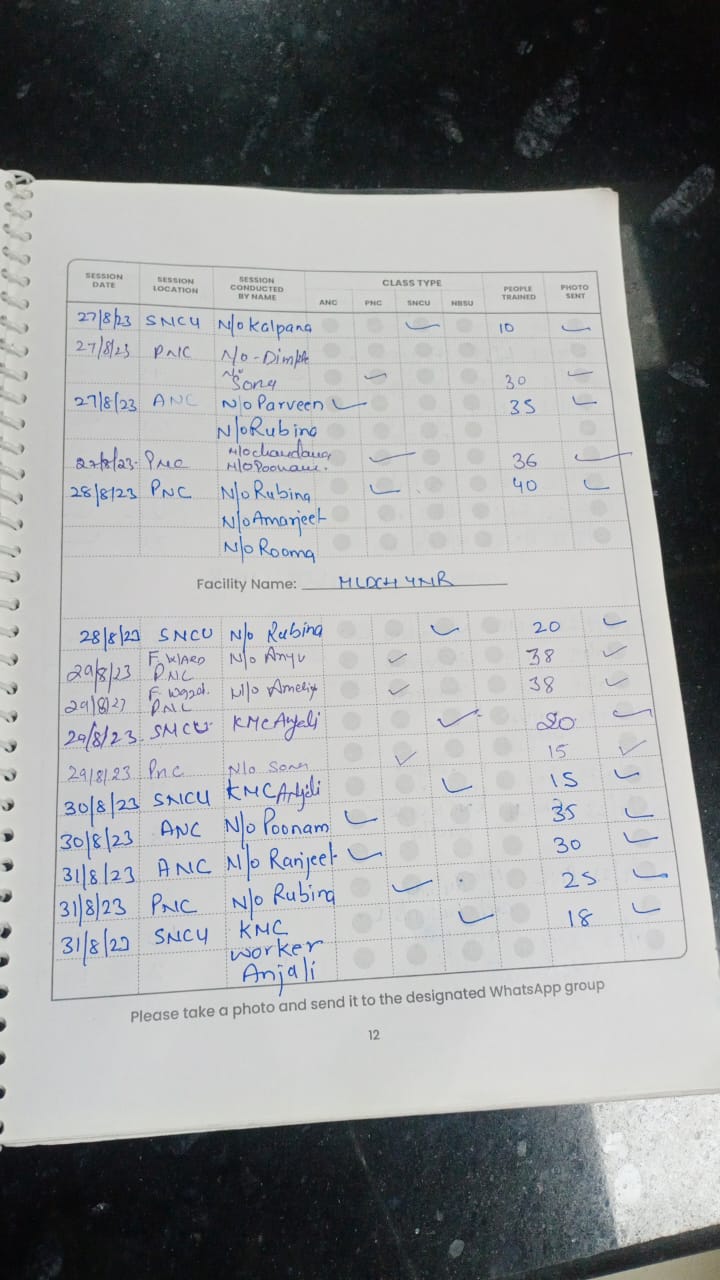 SESSION DATE SESSION LOCATION SESSION CONDUCTED BY NAME CLASS TYPE PEOPLE TRAINED PHOTO SENT
ANC PNC SNCU NBSU
27/8/23 SNCU N/o Kalpana 10
27/8/23 PNC N/o - Dimple
N/o Sony 30
27/8/23 ANC N/o Parveen 35
N/o Rubina
27/8/23 PNC N/o chandana
N/o Poonam. 36
28/8/23 PNC N/o Rubina 40
N/o Amarjeet
N/o Rooma
Facility Name: MLDCH YNR
28/8/23 SNCU N/o Rubina 20
29/8/23 F. WARD PNC N/o Anju 38
29/8/23 F. PNC N/o 38
29/8/23 SNCU KMC Anjali 20
29/8/23 PNC N/o 15
30/8/23 SNCU KMC Anjali 15
30/8/23 ANC N/o Poonam 35
31/8/23 ANC N/o Ranjeet 30
31/8/23 PNC N/o Rubina 25
31/8/23 SNCU KMC 18
worker
Anjali
Please take a photo and send it to the designated WhatsApp group
12